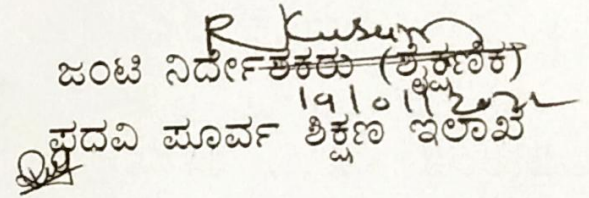 R Kusum
ಜಂಟಿ ನಿರ್ದೇಶಕರು (ಶೈಕ್ಷಣಿಕ)
ಪದವಿ ಪೂರ್ವ ಶಿಕ್ಷಣ ಇಲಾಖೆ